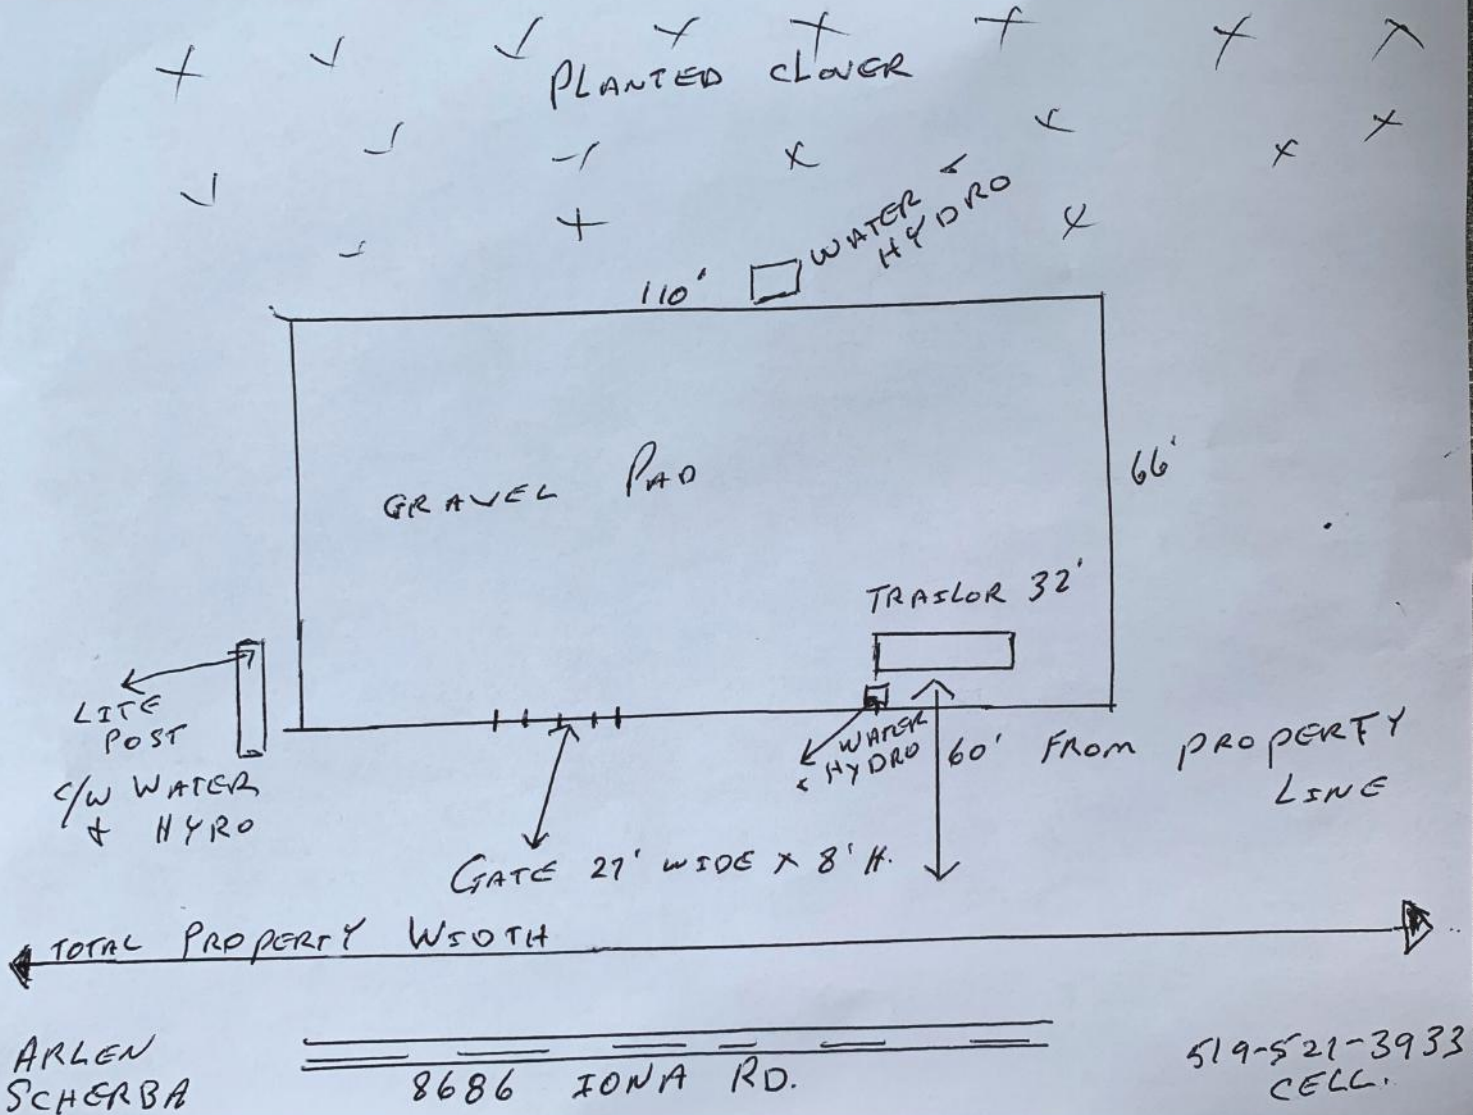 PLANTED CLOVER
WATER &
HYDRO
110'
GRAVEL PAD
66'
TRAILOR 32'
LITE
POST
C/W WATER
& HYRO
WATER
& HYDRO
60' FROM PROPERTY
LINE
GATE 27' WIDE X 8' H.
TOTAL PROPERTY WIDTH
ARLEN
SCHERBA
8686 IONA RD.
519-521-3933
CELL.